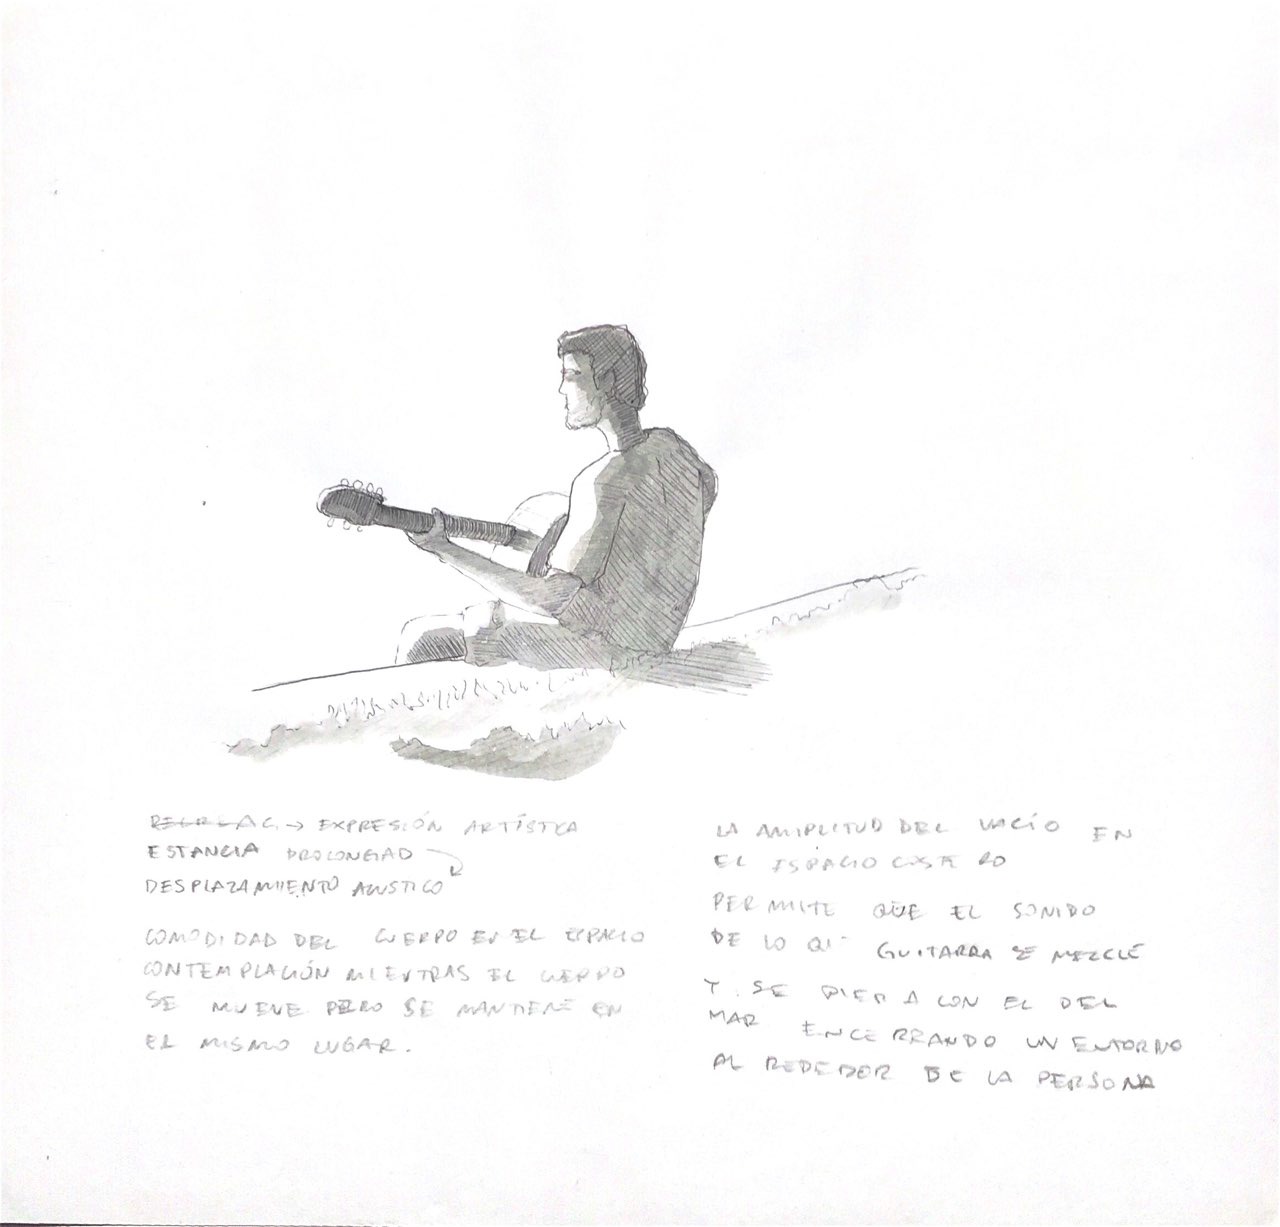 → EXPRESIÓN ARTÍSTICA
ESTANCIA PROLONGAD
DESPLAZAMIENTO ACUSTICO
COMODIDAD DEL CUERPO EN EL ESPACIO
CONTEMPLACIÓN MIENTRAS EL CUERPO
SE MUEVE PERO SE MANTIENE EN
EL MISMO LUGAR.
LA AMPLITUD DEL VACÍO EN
EL ESPACIO COSTERO
PERMITE QUE EL SONIDO
DE LO GUITARRA SE MEZCLE
Y SE PIERDA CON EL DEL
MAR ENCERRANDO UN ENTORNO
AL REDEDOR DE LA PERSONA